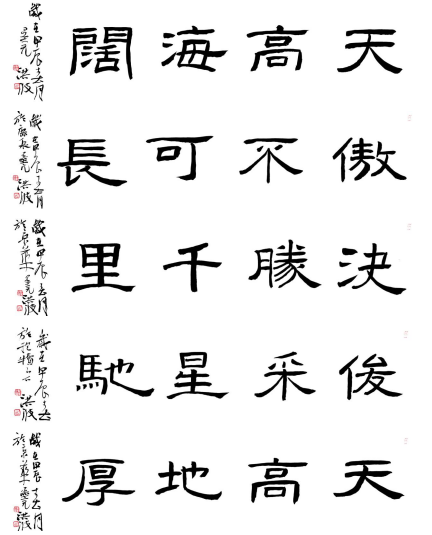 天高海闊
歲在甲辰
洪波
傲不可長
歲在甲辰
洪波
決勝千里
歲在甲辰
洪波
俊采星馳
歲在甲辰
洪波
天高地厚
歲在甲辰
洪波